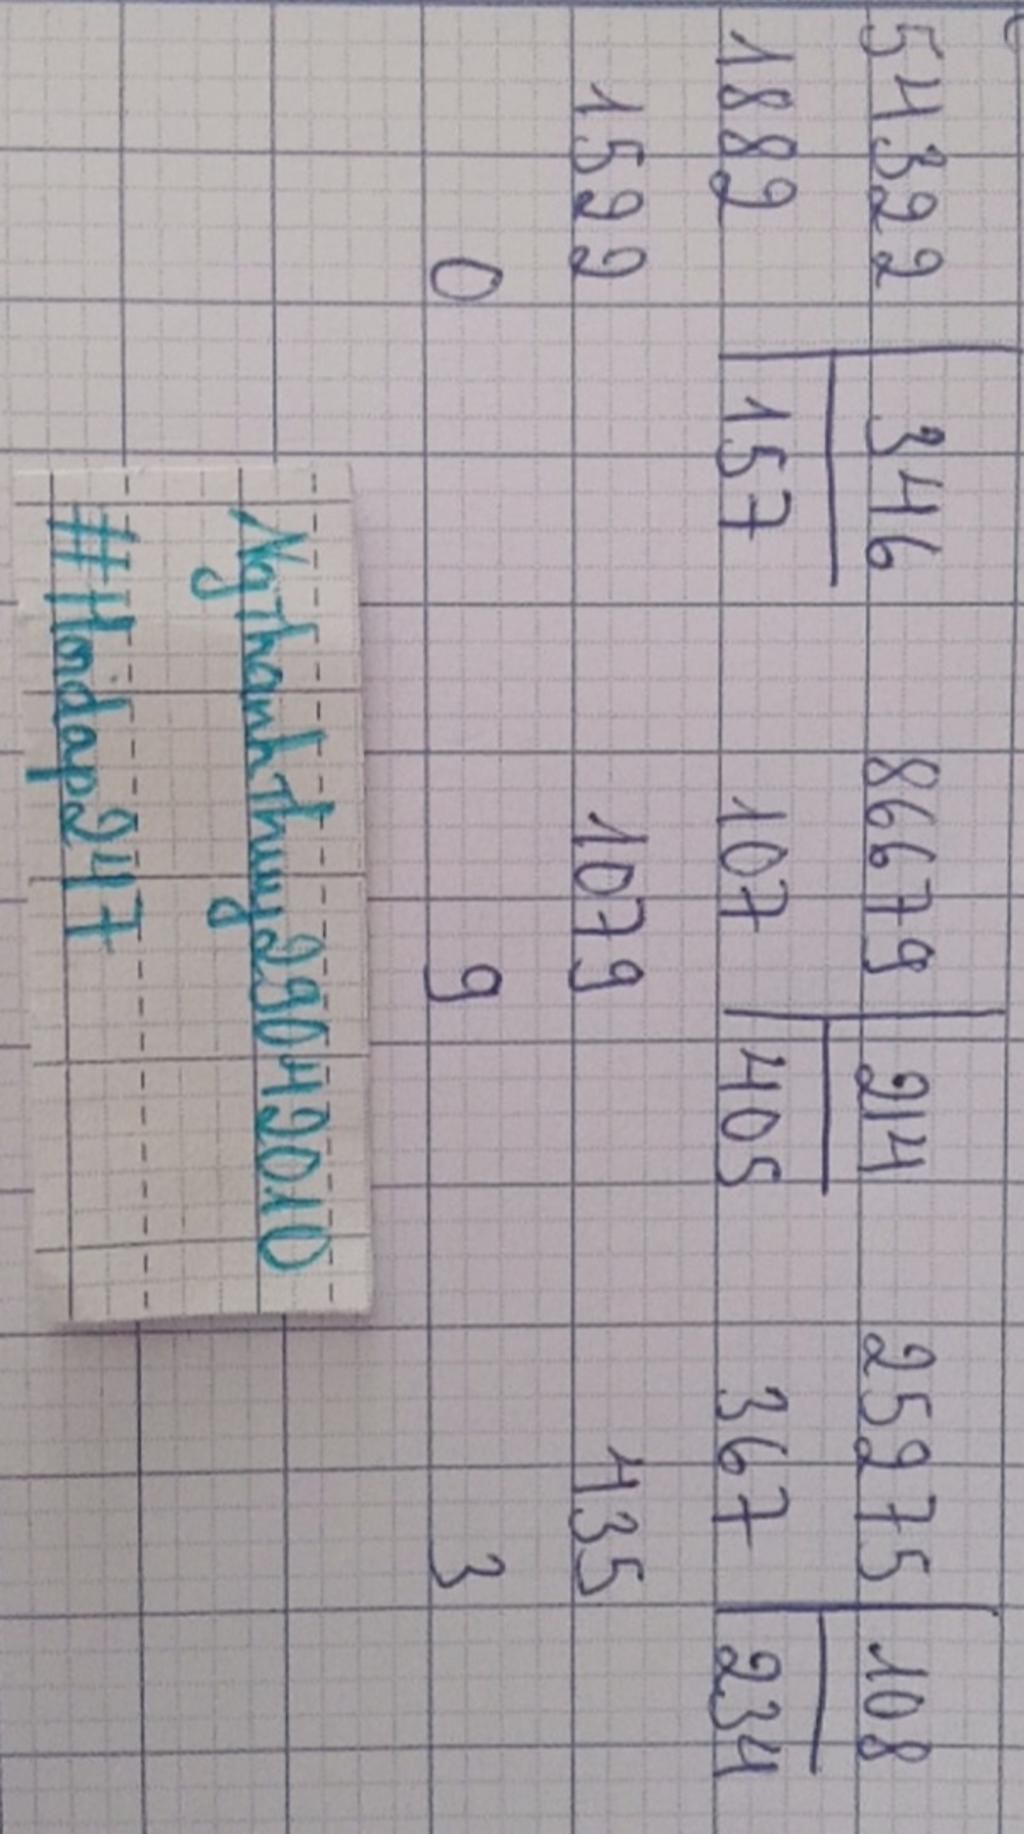 54322 346 86679 214 25275 108
1882 157 107 405 367 234
1522 1079 435
0 9 3
NgThanhThuy29042010
#Hoidap247